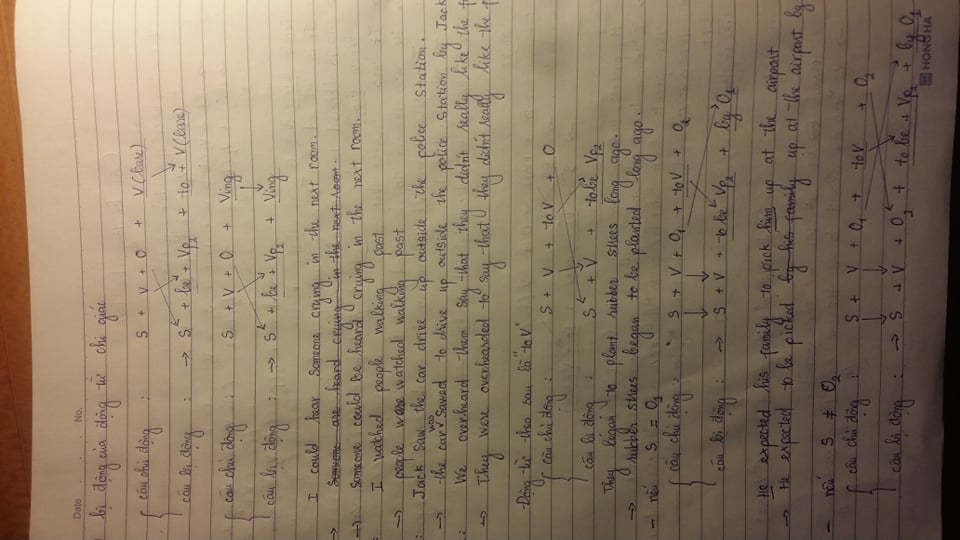 Date . . . . . No.
bị động của động từ chỉ giác
câu chủ động : S + V + O + V(bare)
câu bị động : → S + be + Vp2 + to + V(bare)
câu chủ động : S + V + O + Ving
câu bị động : → S + be + Vp2 + Ving
I could hear someone crying in the next room.
→ Someone are heard crying in the next room.
→ Someone could be heard crying in the next room.
I watched people walking past
→ people were watched walking past
: Jack saw the car drive up outside the police station.
→ the car was sawed to drive up outside the police station by Jack
: We overheard them say that they didn't really like the
→ They were overhearded to say that they didn't really like the
Động từ theo sau là "to V"
câu chủ động : S + V + to V + O
câu bị động : S + V + to be Vp2
They began to plant rubber trees long ago.
→ rubber trees began to be planted long ago.
- nếu S = O1
câu chủ động : S + V + O1 + to V + O2
câu bị động : S + V + to be Vp2 + by O1
He expected his family to pick him up at the airport
→ He expected to be picked by his family up at the airport by
- nếu S ≠ O2
câu chủ động : S + V + O1 + to V + O2
câu bị động : → S + V + O2 + to be + Vp2 + by O1
HONG HA